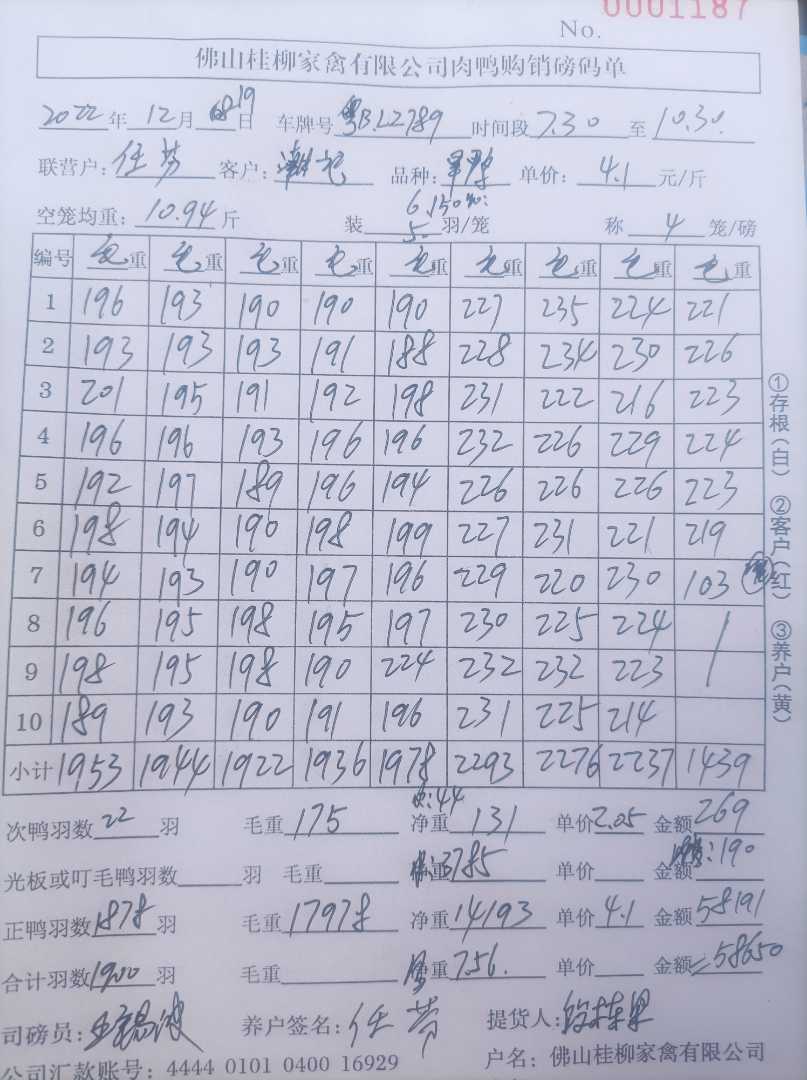 0001187
No.
佛山桂柳家禽有限公司肉鸭购销磅码单
2022年12月 19日 车牌号 粤B.L2789 时间段 7.30 至 10.30.
联营户: 任芬 客户: 潮记 品种: 单价: 4.1 元/斤
6.150
空笼均重: 10.94 斤 装 5. 羽/笼 称 4 笼/磅
编号 毛重 毛重 毛重 毛重 毛重 毛重 毛重 毛重 毛重
1 196 193 190 190 190 227 235 224 221
2 193 193 193 191 188 228 234 230 226
3 201 195 191 192 198 231 222 216 223
4 196 196 193 196 196 232 226 229 224
5 192 197 189 196 194 226 226 226 223
6 198 194 190 198 199 227 231 221 219
7 194 193 190 197 196 229 220 230 103
8 196 195 198 195 197 230 225 224
9 198 195 198 190 224 232 232 223
10 189 193 190 191 196 231 225 214
小计 1953 1944 1922 1936 1978 2293 2276 2237 1439
:44
次鸭羽数 22 羽 毛重 175 净重 131 单价 2.05 金额 269
光板或叮毛鸭羽数 羽 毛重 :3785 单价 金额 :190
正鸭羽数 1878 羽 毛重 17978 净重 14193 单价 4.1 金额 58191
合计羽数 1900 羽 毛重 重 7.56. 单价 金额 =58650
司磅员: 养户签名: 任芬 提货人:
公司汇款账号: 4444 0101 0400 16929 户名: 佛山桂柳家禽有限公司
①存根(白) ②客户(红) ③养户(黄)